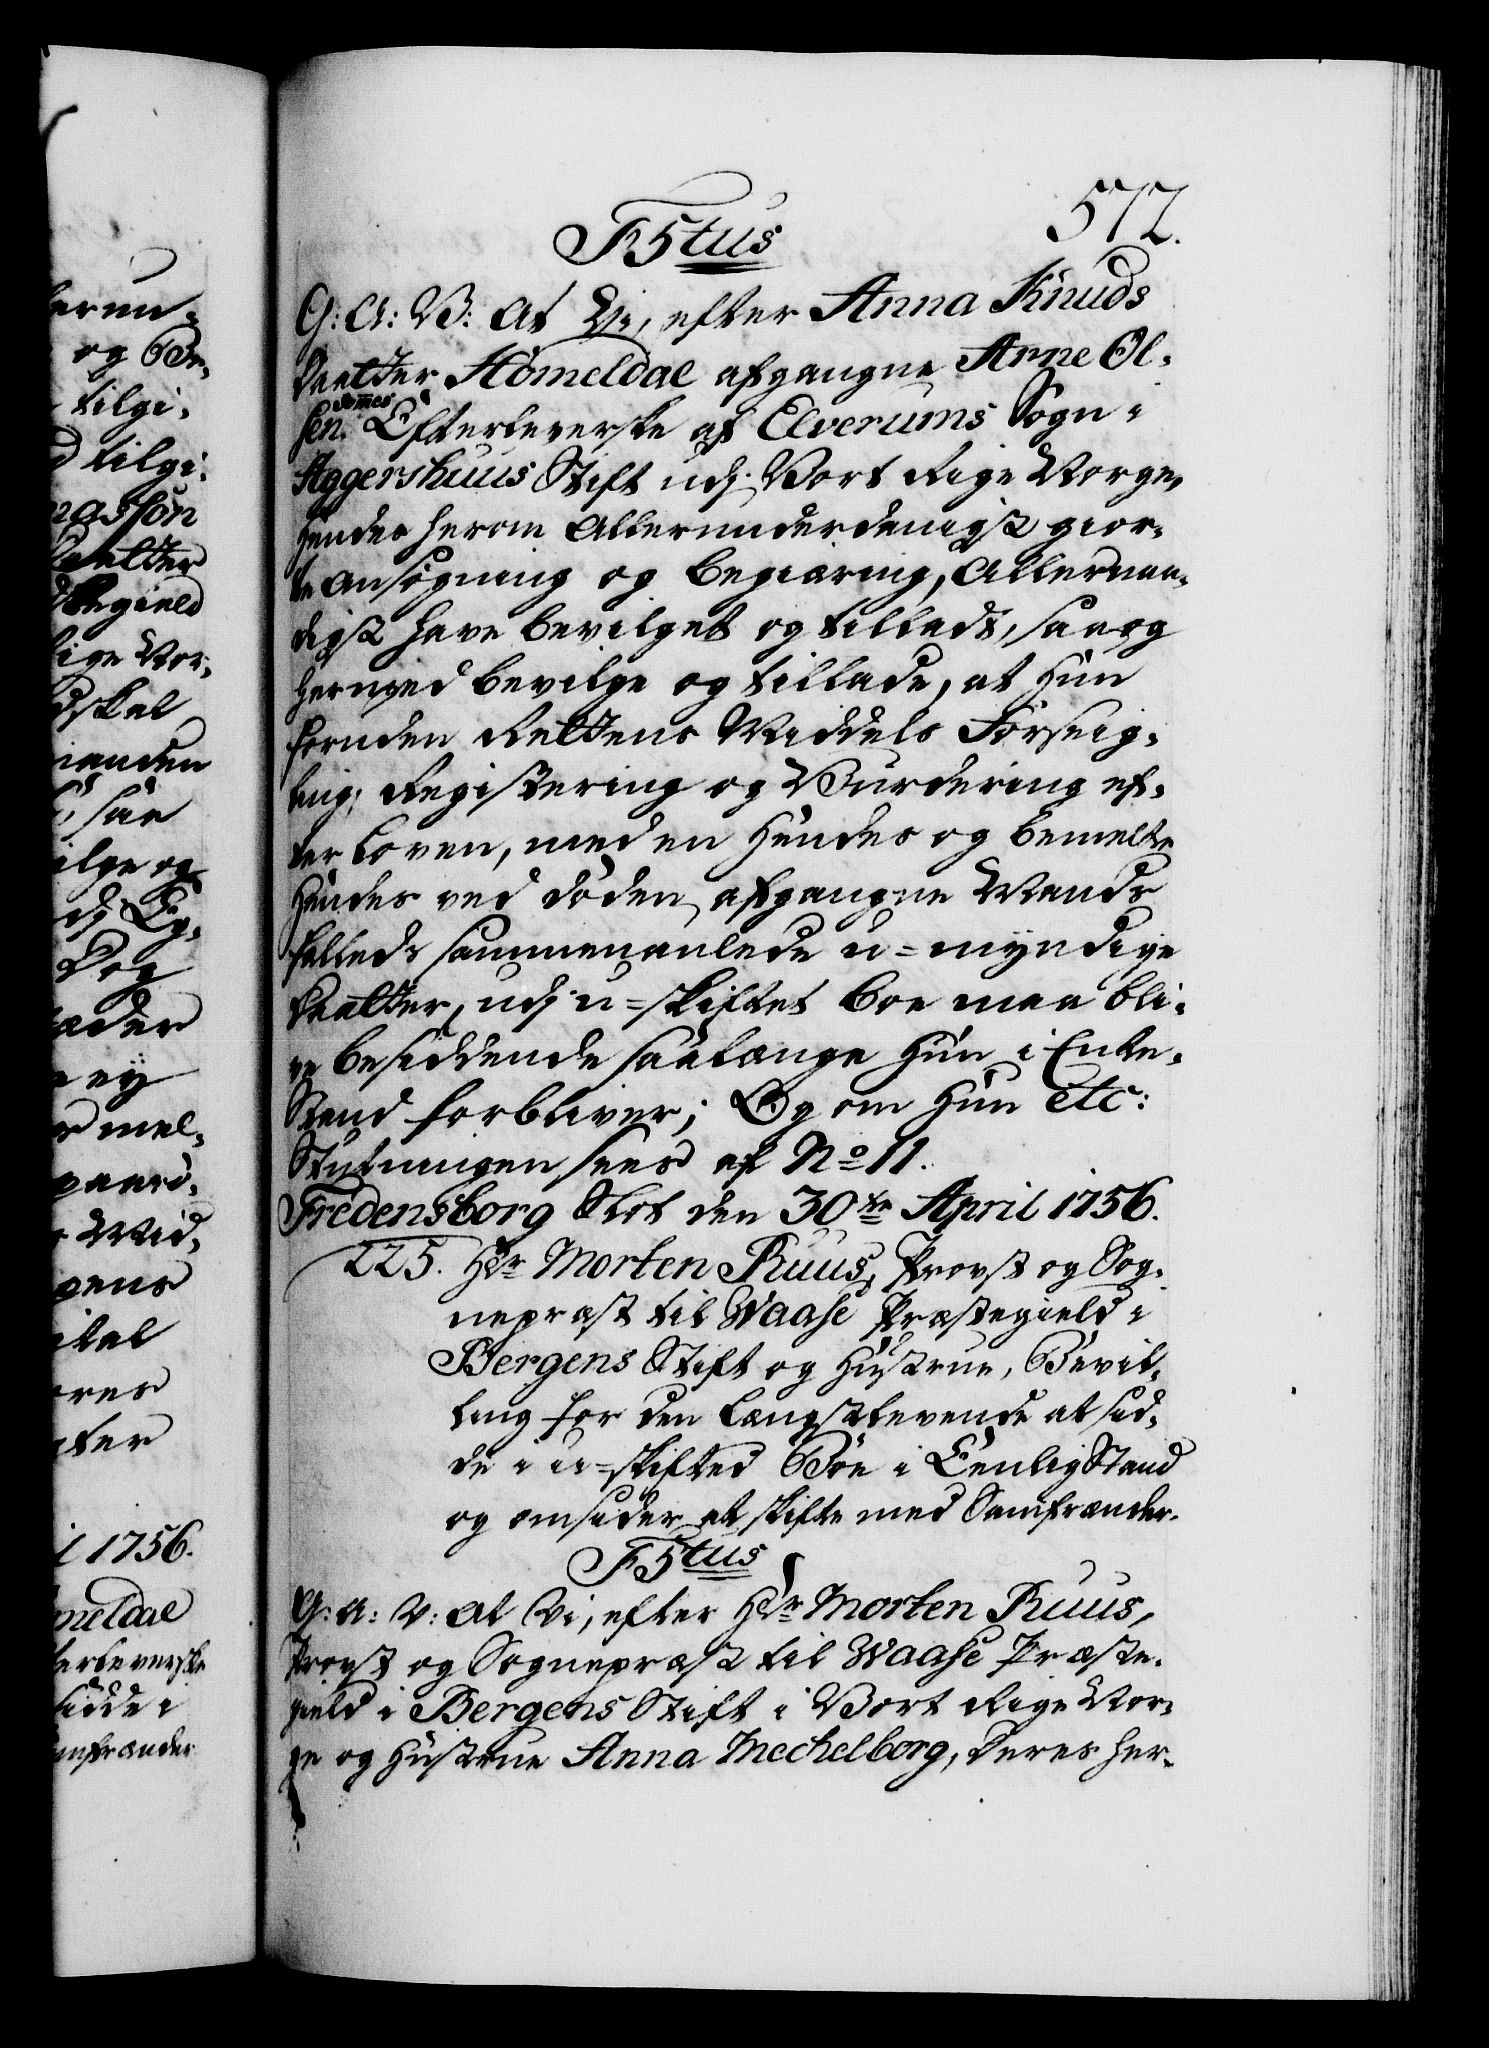 572.
F5tus
G: A: V: At Vi, efter Anna Knuds
Daatter Hömeldal afgangne Arne Ol-
sen sönnes Efterleverske af Elverums Sogn i
Aggershuus Stift udj Vort Rige Norge,
hendes herom Allerunderdanigst gior-
te Ansøgning og begiæring, Allernaa-
digst have bevilget og tilladt, saa og
hermed bevilge og tillade, at Hun
foruden Rettens Middels Forseig-
ling, Registering og Vurdering ef-
ter Loven, med en Hendes og bemelte
Hendes ved døden afgangne Mands
felleds sammenaulede u-myndige
Daatter, udj u-skiftet Boe maa bli-
ve besiddende saalænge Hun i Enke-
Stand forbliver; Og om Hun etc:
Slutningen sees af No 11.
Fredensborg Slot den 30te April 1756.
225. Hr Morten Ruus, Provst og Sog-
nepræst til Waase Præstegield i
Bergens Stift og Hustrue, Bevil-
ling for den Længstlevende at sid-
de i u-skifted Boe i Eenlig Stand
og omsider at skifte med Samfrænder.
F5tus
G: A: V: At Vi, efter Hr Morten Ruus,
Provst og Sognepræst til Waase Præste-
gield i Bergens Stift i Vort Rige Nor-
ge og Hustrue Anna Mechelborg, deres her-